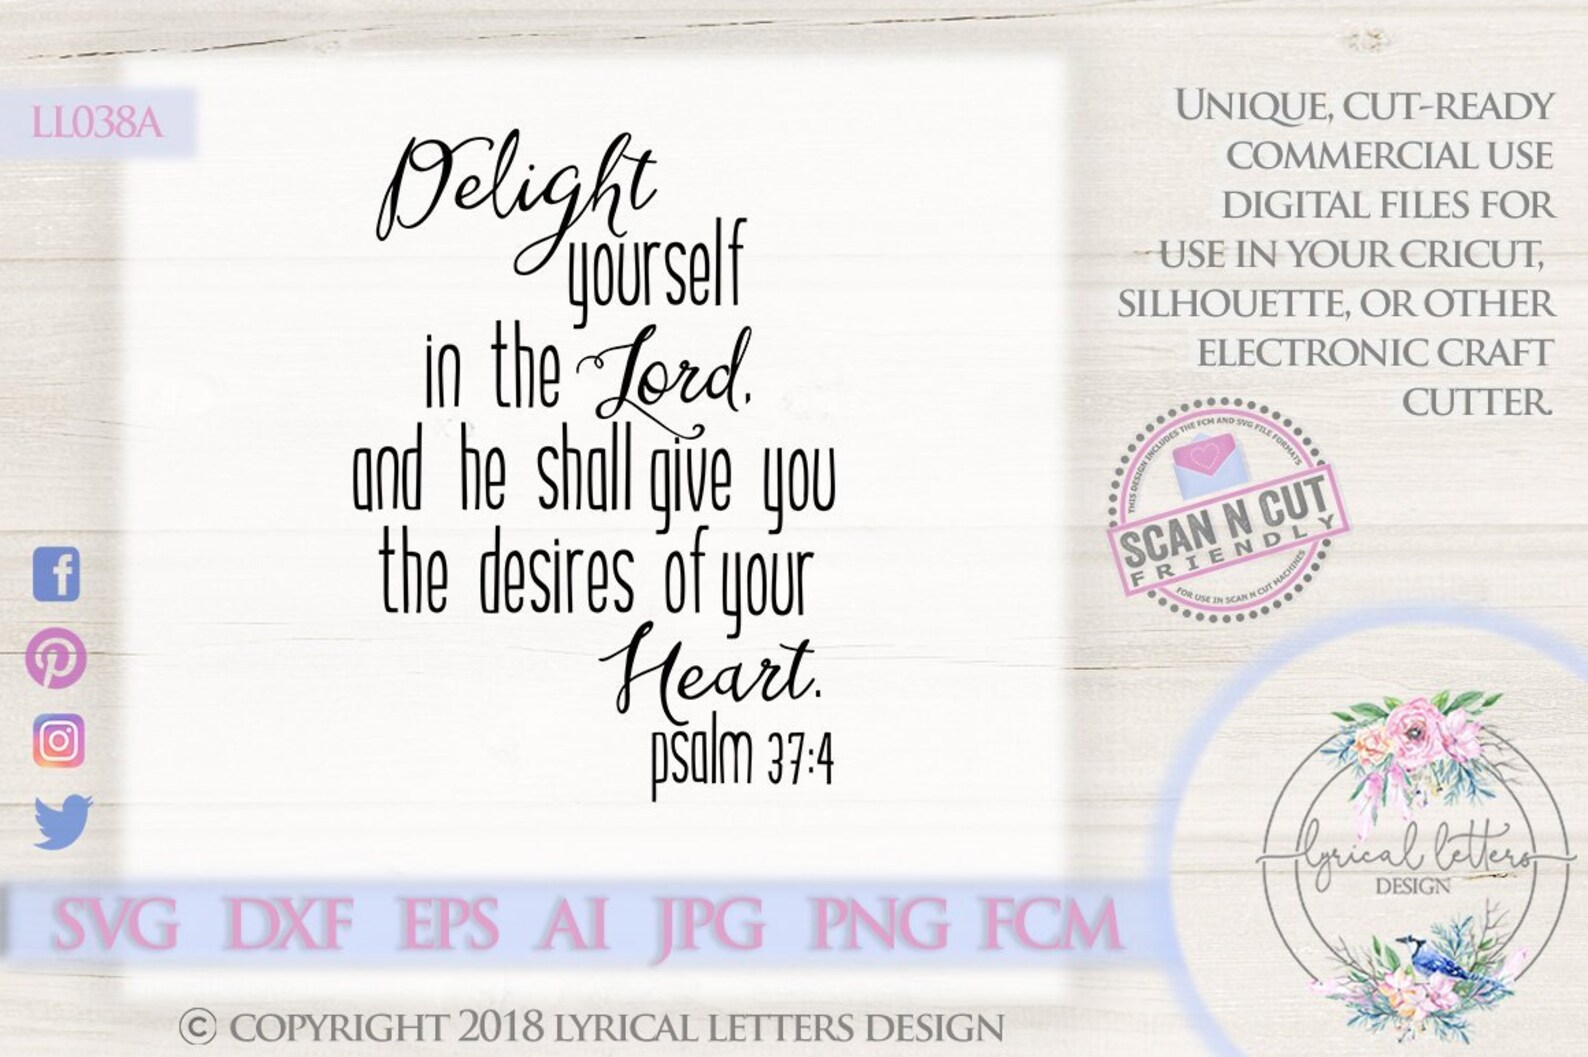 LL038A
Delight
yourself
in the Lord,
and he shall give you
the desires of your
Heart.
psalm 37:4
UNIQUE, CUT-READY
COMMERCIAL USE
DIGITAL FILES FOR
USE IN YOUR CRICUT,
SILHOUETTE, OR OTHER
ELECTRONIC CRAFT
CUTTER.
THIS DESIGN INCLUDES THE FCM AND SVG FILE FORMATS
SCAN N CUT
FRIENDLY
FOR USE IN SCAN N CUT MACHINES
lyrical letters
DESIGN
SVG DXF EPS AI JPG PNG FCM
© COPYRIGHT 2018 LYRICAL LETTERS DESIGN